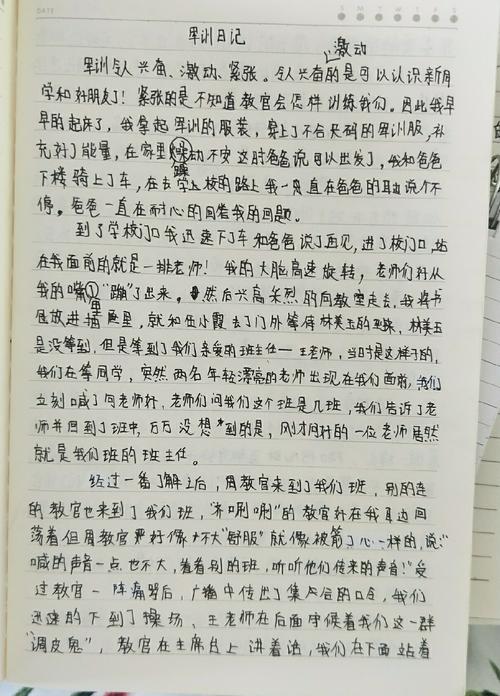 DATE
S M T W T F S
军训日记
激动
军训令人兴奋、激动、紧张。令人兴奋的是可以认识新同
学和好朋友!紧张的是不知道教官会怎样训练我们。因此我早
早的起床了,我拿起军训的服装,穿上了不合尺码的军训服,补
充好了能量,在家里躁动不安这时爸爸说可以出发了,我和爸爸
躁
下楼骑上了车,在去学校的路上我一直在爸爸的耳边说个不
停。爸爸一直在耐心的回答我的问题。
到了学校门口我迅速下了车和爸爸说了再见,进了校门口,站
在我面前的就是一排老师!我的大脑高速旋转,老师们好从
我的嘴"蹦"了出来。然后兴高采烈的向教室走去,我将书
里
包放进里,就和伍小霞去了门外等待林美玉的到来,林美玉
是没等到,但是等到了我们亲爱的班主任—王老师,当时是这样子的,
我们在等同学,突然两名年轻漂亮的老师出现在我们面前,我们
立刻喊了句老师好,老师们问我们这个班是几班,我们告诉了老
师并回到了班中,万万没想到的是,刚才问好的一位老师居然
就是我们班的班主任。
经过一番了解之后,周教官来到了我们班,别的连
的教官也来到了我们班,"齐唰唰"的教官好在我耳边回
荡着但周教官好像不太"舒服"就像被箭了心一样的,说:"
喊的声音一点也不大,看看别的班,听听他们传来的声音!"受
过教官一阵痛骂后,广播中传出了集合的口令,我们
迅速的下到了操场、王老师在后面守候着我们这一群
"调皮鬼",教官在主席台上讲着话,我们在下面站着